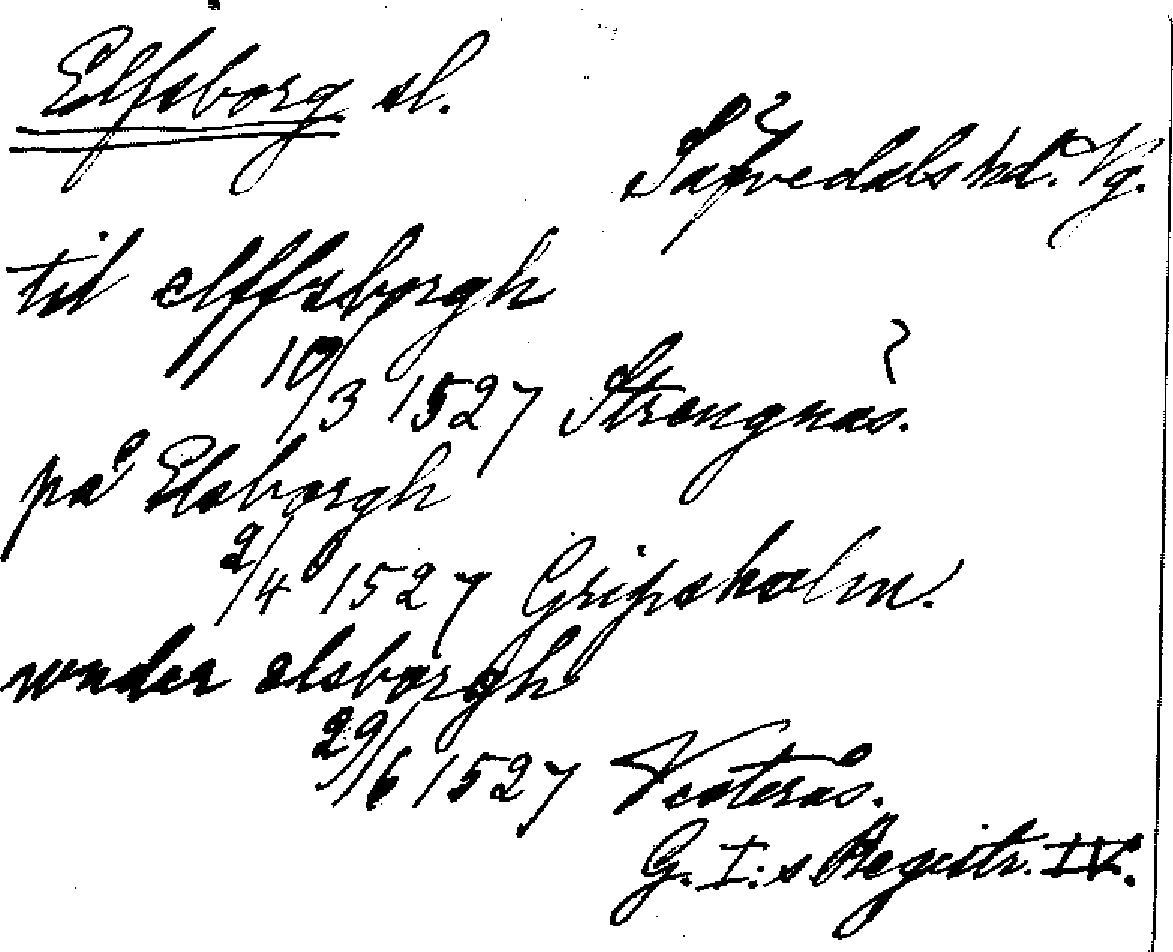 Elfsborg sl.
Säfvedals hd. Vg.
til elffsborgh
10/3 1527 Strengnäs.
på Elsborgh
2/4 1527 Gripsholm.
wnder elsborgh
29/6 1527 Vesterås.
G. I:s Registr. IV.